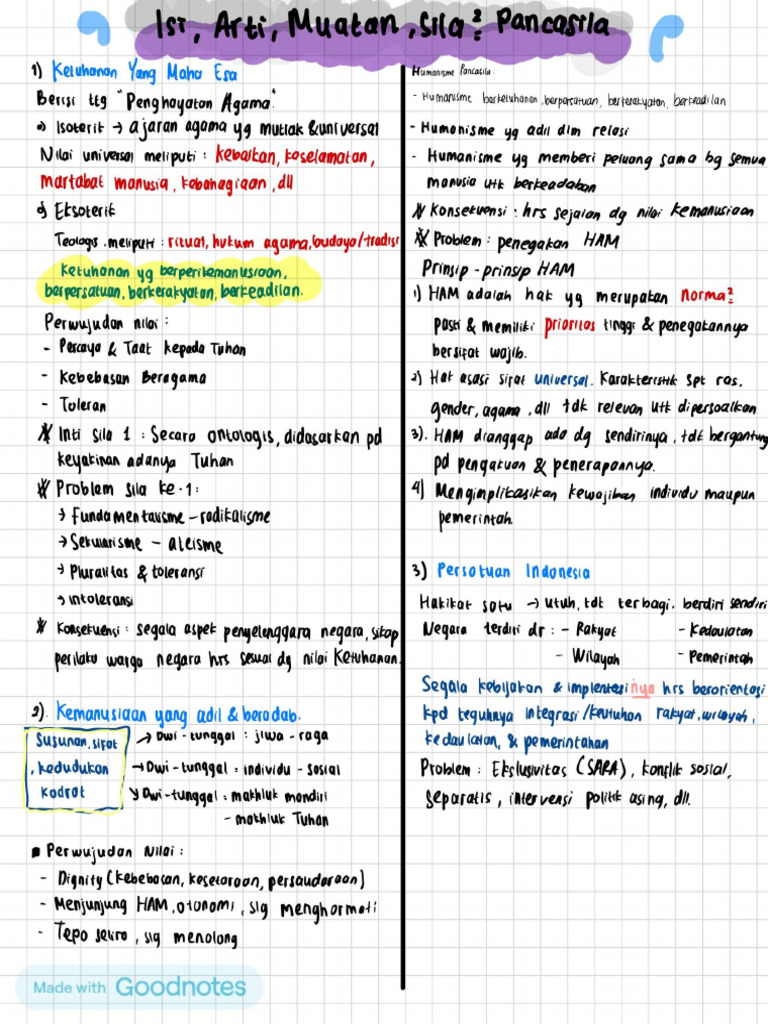 Isi, Arti, Muatan, Sila² Pancasila
1) Ketuhanan Yang Maha Esa
Berisi ttg "Penghayatan Agama".
a) Isoterik → ajaran agama yg mutlak & universal
Nilai universal meliputi : kebaikan, keselamatan,
martabat manusia, kebahagiaan, dll
b) Eksoterik
Teologis meliputi : ritual, hukum agama, budaya/tradisi
Ketuhanan yg berperikemanusiaan,
berpersatuan, berkerakyatan, berkeadilan.
Perwujudan nilai :
- Percaya & Taat kepada Tuhan
- Kebebasan Beragama
- Toleran
* Inti sila 1 : Secara ontologis, didasarkan pd
keyakinan adanya Tuhan
* Problem sila ke-1 :
→ Fundamentalisme - radikalisme
→ Sekularisme - ateisme
→ Pluralitas & toleransi
→ intoleransi
* Konsekuensi : segala aspek penyelenggara negara, sikap
perilaku warga negara hrs sesuai dg nilai Ketuhanan.
2). Kemanusiaan yang adil & beradab.
Susunan, sifat
, kedudukan
kodrat
→ Dwi-tunggal : jiwa - raga
→ Dwi-tunggal = individu - sosial
↘ Dwi-tunggal = makhluk mandiri
- makhluk Tuhan
▪ Perwujudan Nilai :
- Dignity (kebebasan, kesetaraan, persaudaraan)
- Menjunjung HAM, otonomi, slg menghormati
- Tepo seliro, slg menolong
Humanisme Pancasila :
- Humanisme berketuhanan, berpersatuan, berkerakyatan, berkeadilan
- Humanisme yg adil dlm relasi
- Humanisme yg memberi peluang sama bg semua
manusia utk berkeadaban
* Konsekuensi : hrs sejalan dg nilai kemanusiaan
* Problem : penegakan HAM
Prinsip - prinsip HAM
1) HAM adalah hak yg merupakan norma²
pasti & memiliki prioritas tinggi & penegakannya
bersifat wajib.
2) Hak asasi sifat universal. Karakteristik spt ras,
gender, agama, dll tdk relevan utk dipersoalkan
3). HAM dianggap ada dg sendirinya, tdk bergantung
pd pengakuan & penerapannya.
4) Mengimplikasikan kewajiban individu maupun
pemerintah.
3) Persatuan Indonesia
Hakikat satu → utuh, tdt terbagi, berdiri sendiri
Negara terdiri dr : - Rakyat - Kedaulatan
- Wilayah - Pemerintah
Segala kebijakan & implentasinya hrs berorientasi
kpd teguhnya integrasi/keutuhan rakyat, wilayah,
kedaulatan, & pemerintahan
Problem : Ekslusivitas (SARA), konflik sosial,
separatis, intervensi politik asing, dll.
Made with Goodnotes